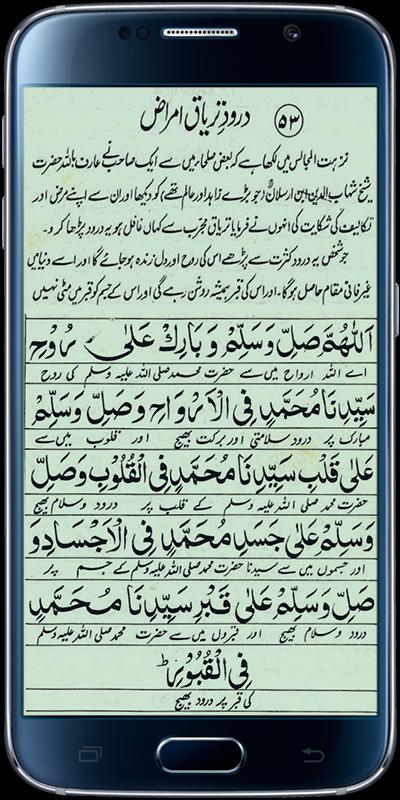 ۵۳ درود تریاق امراض
نزہت المجالس میں لکھا ہے کہ بعض صلحاء میں سے ایک صاحب نے عارف باللہ حضرت
شیخ شہاب الدین ابن ارسلانؒ (جو بڑے زاہد اور عالم تھے) کو دیکھا اور ان سے اپنے مرض اور
تکالیف کی شکایت کی انہوں نے فرمایا تریاق مجرب سے کہاں غافل ہو یہ درود پڑھا کرو۔
جو شخص یہ درود کثرت سے پڑھے اس کی روح اور دل زندہ ہو جائے گا اور اسے دنیا میں
غیر فانی مقام حاصل ہوگا۔ اور اس کی قبر ہمیشہ روشن رہے گی اور اس کے جسم کو قبر میں مٹی نہیں
اَللّٰهُمَّ صَلِّ وَسَلِّمْ وَ بَارِكْ عَلٰى رُوْحِ
اے اللہ ارواح میں سے حضرت محمد صلی اللہ علیہ وسلم کی روح
سَيِّدِنَا مُحَمَّدٍ فِي الْاَرْوَاحِ وَصَلِّ وَسَلِّمْ
مبارک پر درود سلامتی اور برکت بھیج اور قلوب میں سے
عَلٰى قَلْبِ سَيِّدِنَا مُحَمَّدٍ فِي الْقُلُوْبِ وَصَلِّ
حضرت محمد صلی اللہ علیہ وسلم کے قلب پر درود و سلام بھیج
وَسَلِّمْ عَلٰى جَسَدِ مُحَمَّدٍ فِي الْاَجْسَادِ وَ
اور جسموں میں سے سیدنا حضرت محمد صلی اللہ علیہ وسلم کے جسم پر
صَلِّ وَسَلِّمْ عَلٰى قَبْرِ سَيِّدِنَا مُحَمَّدٍ
درود و سلام بھیج اور قبروں میں سے حضرت محمد صلی اللہ علیہ وسلم
فِي الْقُبُوْرِ ط
کی قبر پر درود بھیج